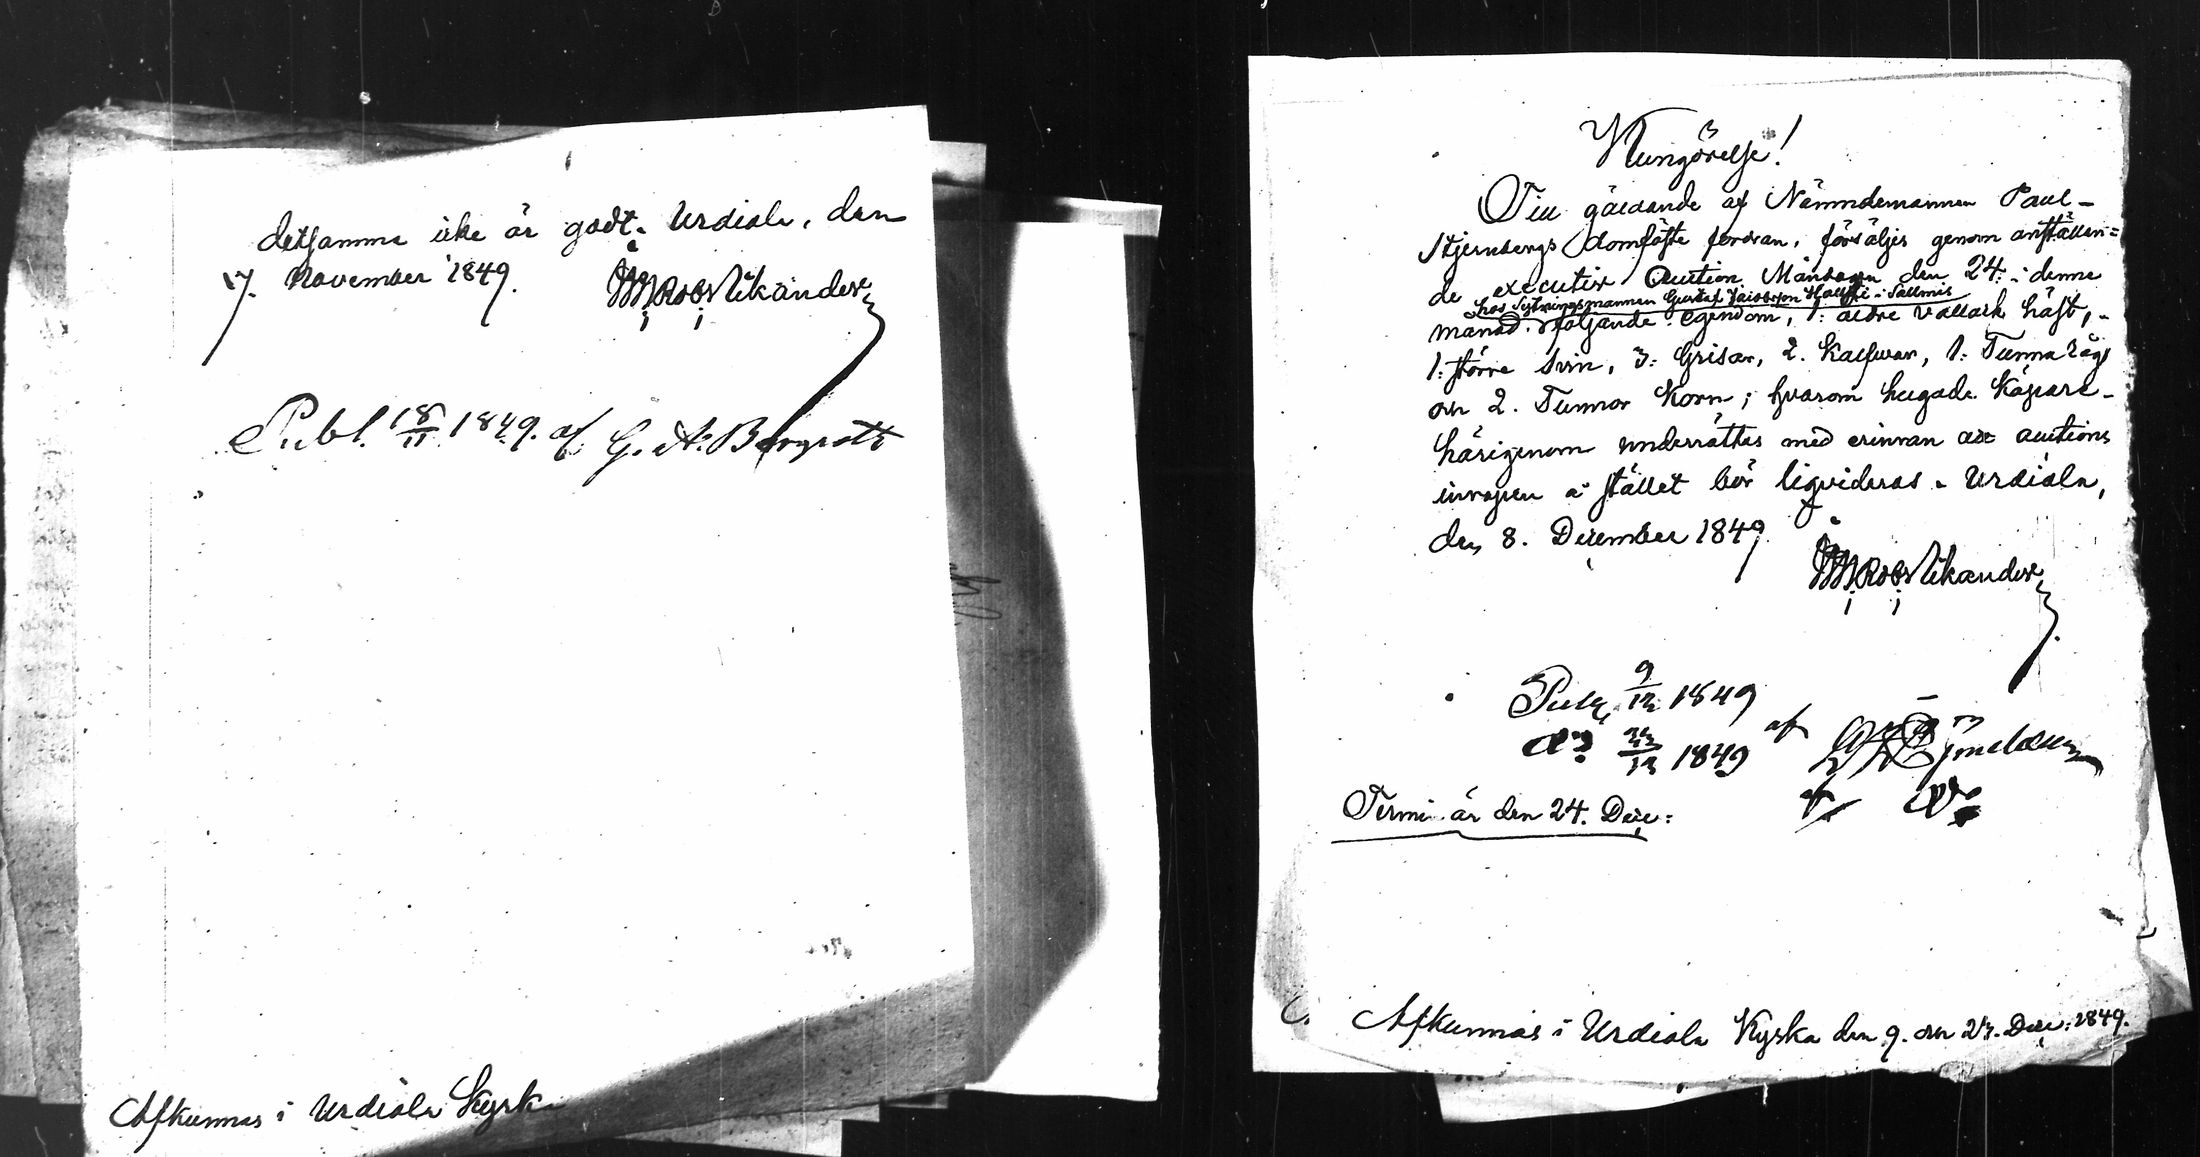 detsamma icke är godt. Urdiala, den
17. November 1849.
Rob. Nikander
Publ. 18/11 1849. af G. A. Bergroth
Afkunnas i Urdiala Kyrk
Kungörelse!
Till gäldande af Nämndemannen Paul
Stjernbergs domfäste fordran, försäljes genom anställan=
de executiv Auction Måndagen den 24. i denne
hos Sexmannen Gustaf Jacobsson i Salmis
månad följande egendom, 1: äldre vallack häst,
1: större Svin, 3: Grisar, 2. Kalfwar, 1: Tunna Råg
och 2. Tunnor Korn; hvarom hugade Köpare
härigenom underrättas med erinran att auctions
inropen å stället bör liqvideras. Urdiala,
den 8. December 1849.
Rob. Nikander
Publ. 9/12 1849
do 23/12 1849 af
af do
Termin är den 24. Dec:
Afkunnas i Urdiala Kyrka den 9. och 23. Dec: 1849.